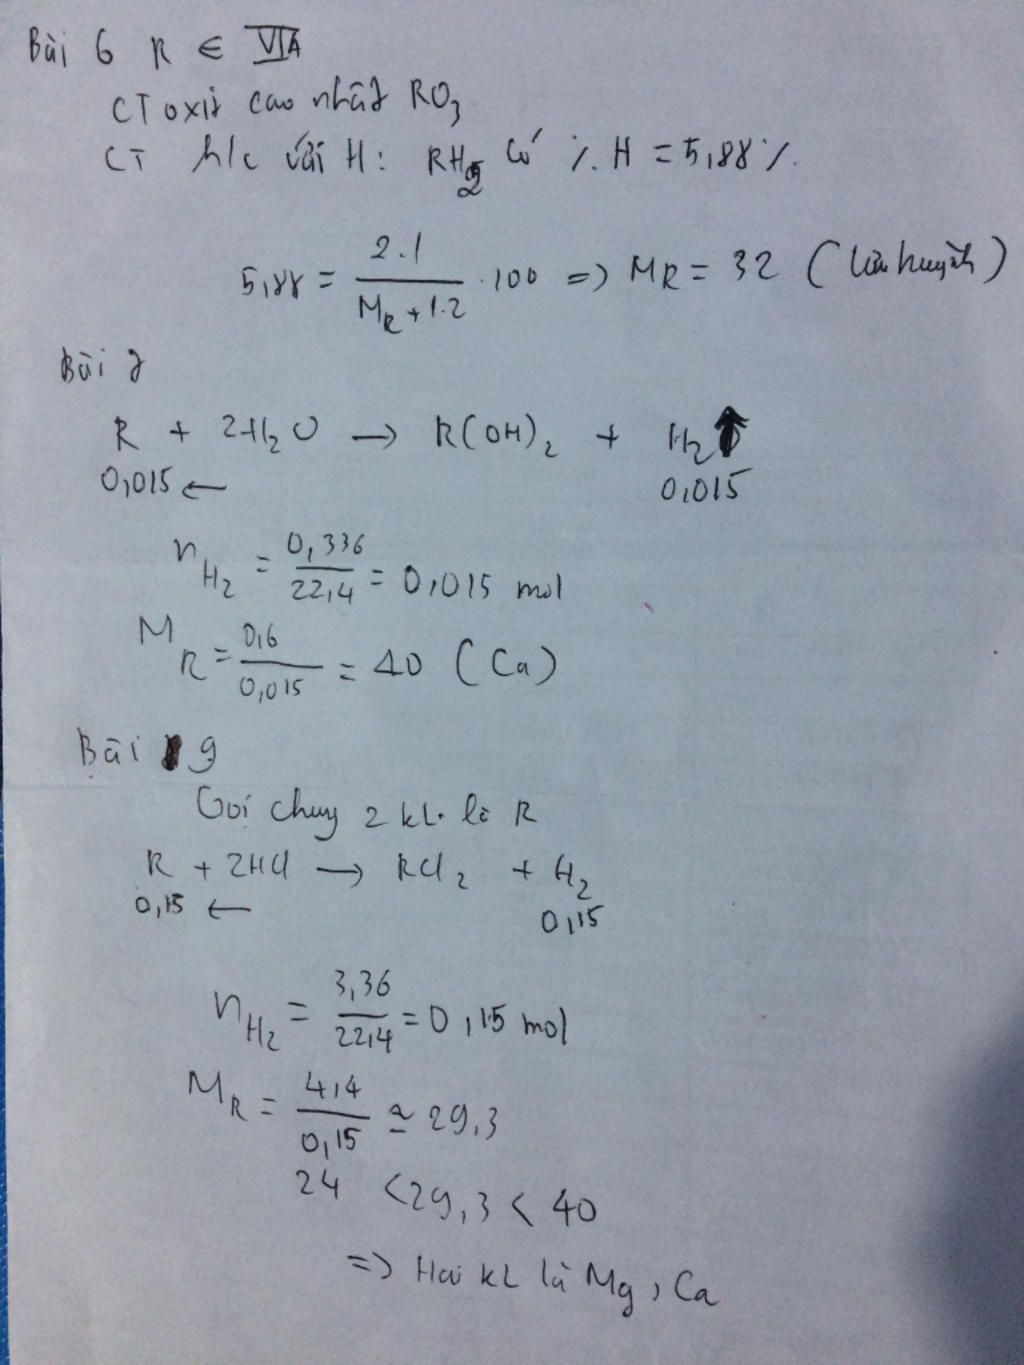 Bài 6 R ∈ VIA
CT oxit cao nhất RO3
CT h/c với H: RH2 có % H = 5,88 %.
5,88 = 2.1 / (MR + 1.2) . 100 => MR = 32 (lưu huỳnh)
Bài 7
R + 2H2O → R(OH)2 + H2↑
0,015 ← 0,015
nH2 = 0,336 / 22,4 = 0,015 mol
MR = 0,6 / 0,015 = 40 (Ca)
Bài 9
Gọi chung 2 kL. là R
R + 2HCl → RCl2 + H2
0,15 ← 0,15
nH2 = 3,36 / 22,4 = 0,15 mol
MR = 4,4 / 0,15 ≃ 29,3
24 < 29,3 < 40
=> Hai kL là Mg, Ca